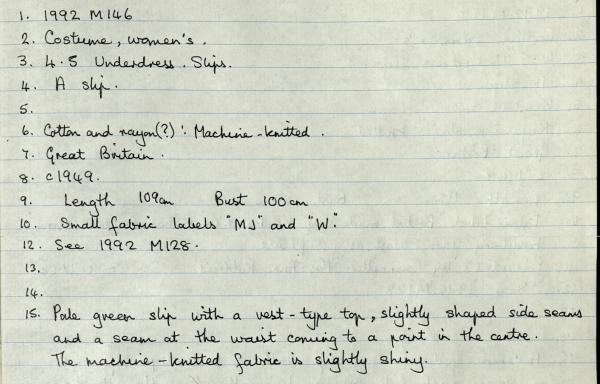 1. 1992 M146
2. Costume, women's.
3. 4.5 Underdress. Slips.
4. A slip.
5.
6. Cotton and rayon(?): Machine-knitted.
7. Great Britain.
8. c1949.
9. Length 109cm Bust 100cm
10. Small fabric labels "MJ" and "W".
12. See 1992 M128.
13.
14.
15. Pale green slip with a vest-type top, slightly shaped side seams
and a seam at the waist coming to a point in the centre.
The machine-knitted fabric is slightly shiny.